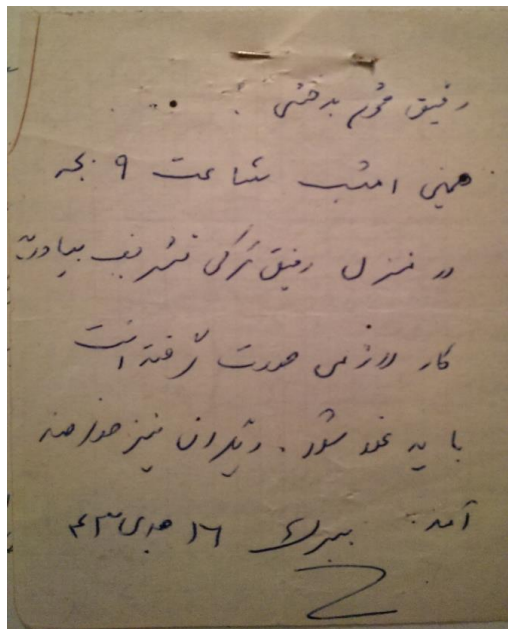 رفیق محترم بدخشی
همین امشب ساعت ۹ بجه
در منزل رفیق ترکی تشریف بیاورید
کار لازمی صورت گرفته است
باید غور شود. دیگران نیز خواهند
آمد. ببرک ۱۶ جدی ۴۳